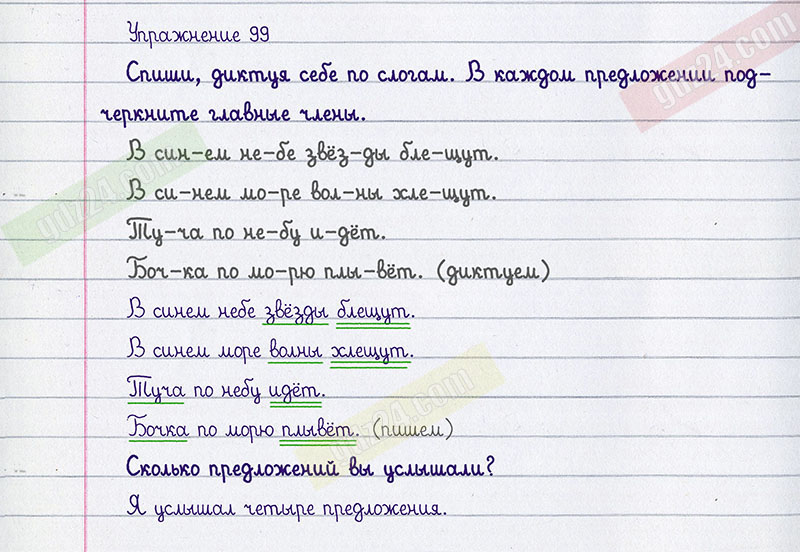 Упражнение 99
Спиши, диктуя себе по слогам. В каждом предложении под-
черкните главные члены.
В син-ем не-бе звёз-ды бле-щут.
В си-нем мо-ре вол-ны хле-щут.
Ту-ча по не-бу и-дёт.
Боч-ка по мо-рю плы-вёт. (диктуем)
В синем небе звёзды блещут.
В синем море волны хлещут.
Туча по небу идёт.
Бочка по морю плывёт. (пишем)
Сколько предложений вы услышали?
Я услышал четыре предложения.
gdz24.com
gdz24.com
gdz24.com